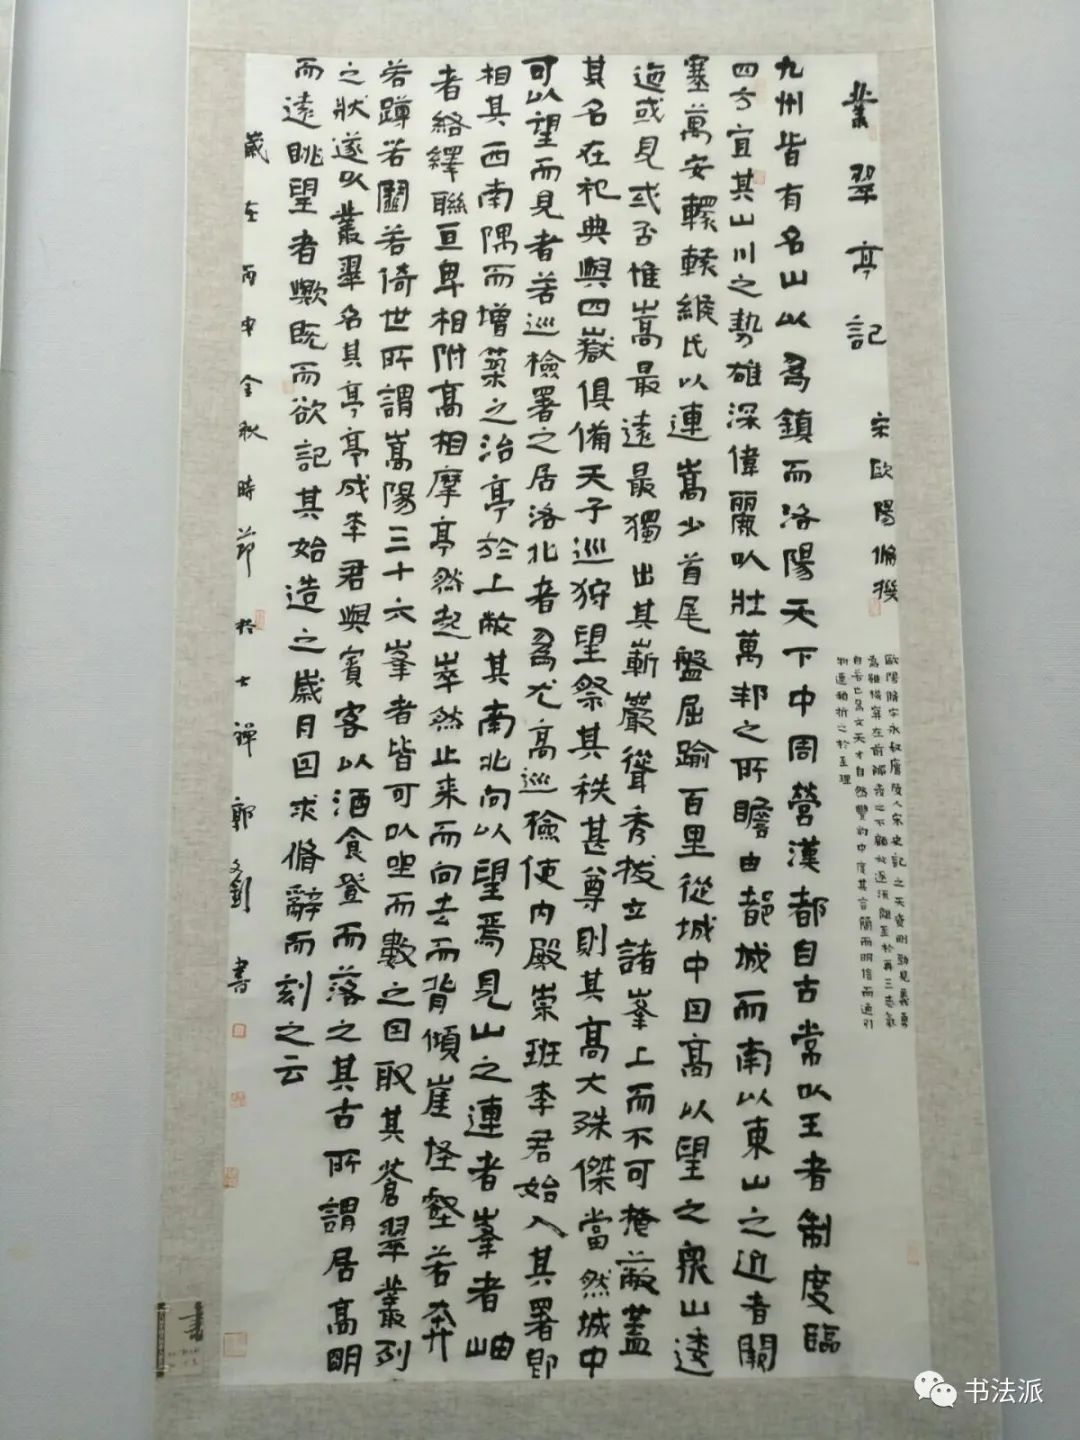 叢翠亭記 宋歐陽脩撰
歐陽脩字永叔廬陵人宋史記之天資剛勁見義勇
為雖機穽在前觸發之不顧放逐流離至於再三志氣
自若也為文天才自然豐約中度其言簡而明信而通引
物連類折之於至理
九州皆有名山以為鎮而洛陽天下中周營漢都自古常以王者制度臨
四方宜其山川之勢雄深偉麗以壯萬邦之所瞻由都城而南以東山之近者闕
塞萬安轘轅緱氏以連嵩少首尾盤屈踰百里從城中因高以望之衆山逶
迤或見或否惟嵩最遠最獨出其嶄巖聳秀拔立諸峯上而不可掩蔽蓋
其名在祀典與四嶽俱備天子巡狩望祭其秩甚尊則其高大殊傑當然城中
可以望而見者若巡檢署之居洛北者為尤高巡檢使內殿崇班李君始入其署即
相其西南隅而增築之治亭於上敞其南北向以望焉見山之連者峯者岫
者絡繹聯亘卑相附高相摩亭然起崒然止来而向去而背傾崖怪壑若奔
若蹲若鬭若倚世所謂嵩陽三十六峯者皆可以坐而數之因取其蒼翠叢列
之狀遂以叢翠名其亭亭成李君與賓客以酒食登而落之其古所謂居高明
而遠眺望者歟既而欲記其始造之歲月因求脩辭而刻之云
歲在丙申金秋時節於士禪郭文釗書
书法派